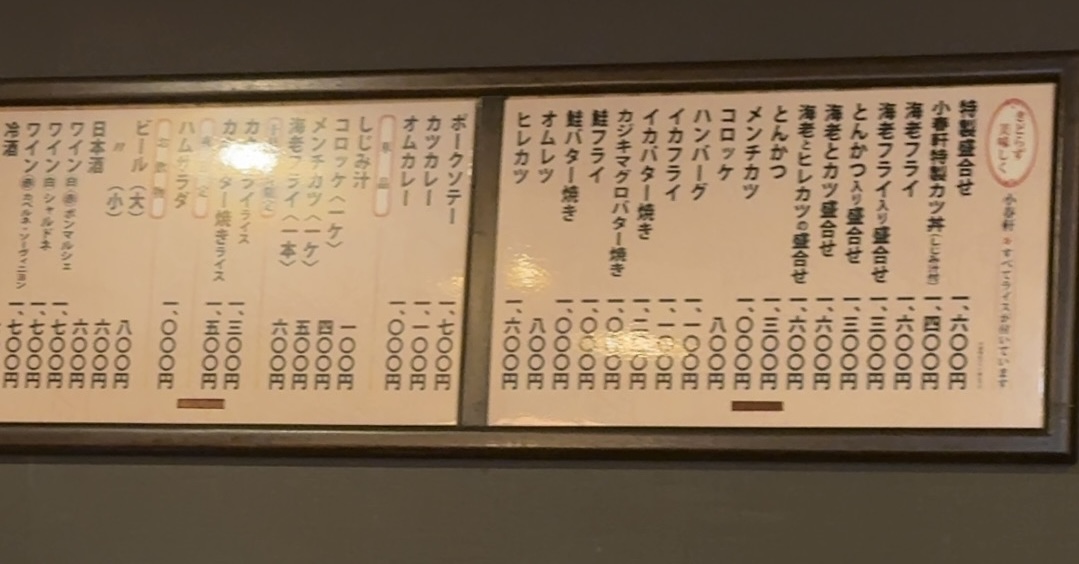 きどらず
美味しく
小春軒 すべてライスが付いています
特製盛合せ 一、六〇〇円
小春軒特製カツ丼(しじみ汁付) 一、四〇〇円
海老フライ 一、六〇〇円
海老フライ入り盛合せ 一、三〇〇円
とんかつ入り盛合せ 一、三〇〇円
海老とカツ盛合せ 一、六〇〇円
海老とヒレカツの盛合せ 一、六〇〇円
とんかつ 一、三〇〇円
メンチカツ 一、〇〇〇円
コロッケ 八〇〇円
ハンバーグ 一、一〇〇円
イカフライ 一、一〇〇円
イカバター焼き 一、二〇〇円
カジキマグロバター焼き 一、〇〇〇円
鮭フライ 一、〇〇〇円
鮭バター焼き 一、〇〇〇円
オムレツ 八〇〇円
ヒレカツ 一、六〇〇円
ポークソテー 一、七〇〇円
カツカレー 一、一〇〇円
オムカレー 一、〇〇〇円
単品
しじみ汁 一〇〇円
コロッケ〈一ケ〉 四〇〇円
メンチカツ〈一ケ〉 五〇〇円
海老フライ〈一本〉 六〇〇円
ライス 一、三〇〇円
ター焼きライス 一、五〇〇円
ハムサラダ 一、〇〇〇円
お飲物
ビール(大) 八〇〇円
〃(小) 六〇〇円
日本酒 六〇〇円
ワイン 白 赤 ボンマルシェ 一、七〇〇円
ワイン 白 シャルドネ 一、七〇〇円
ワイン 赤 カベルネ・ソーヴィニヨン 一、七〇〇円
冷酒